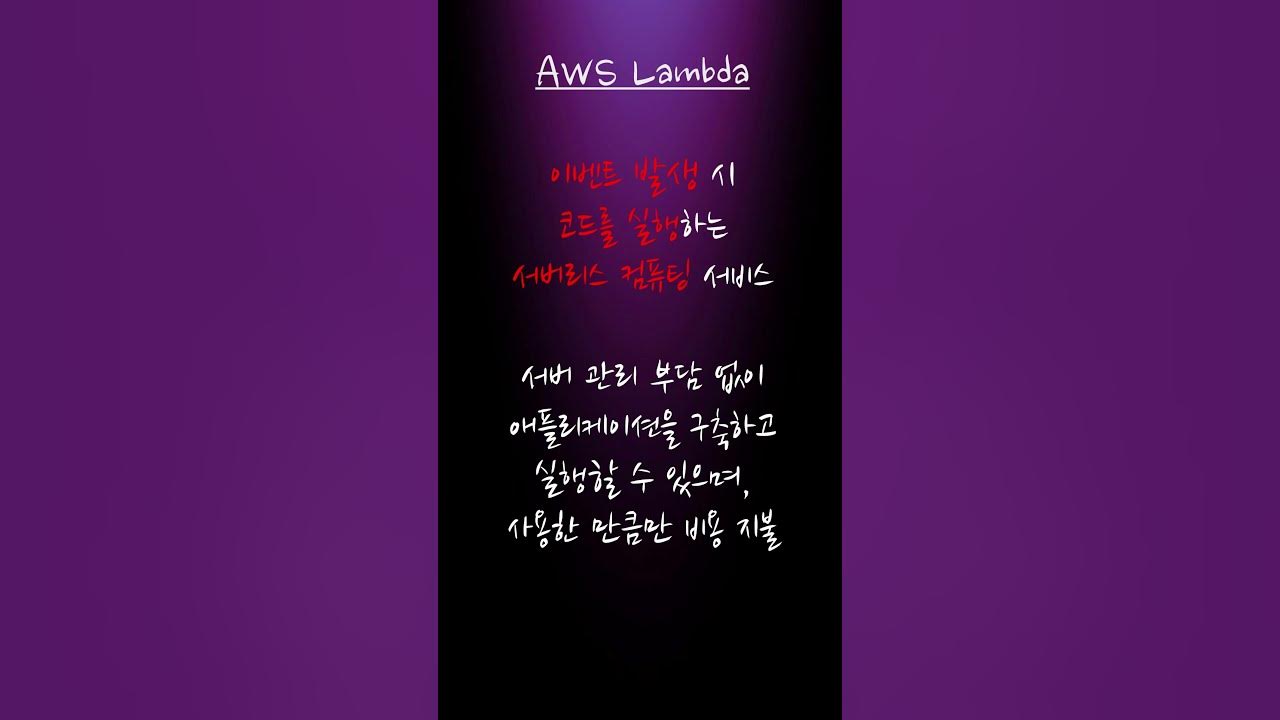 AWS Lambda
이벤트 발생 시
코드를 실행하는
서버리스 컴퓨팅 서비스
서버 관리 부담 없이
애플리케이션을 구축하고
실행할 수 있으며,
사용한 만큼만 비용 지불